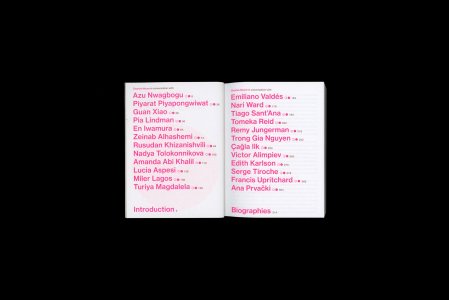 Azu Nwagbogu
Piyarat Piyapongwiwat
Guan Xiao
Pia Lindman
En Iwamura
Zeinab Alhashemi
Rusudan Khizanishvili
Nadya Tolokonnikova
Amanda Abi Khalil
Lucia Aspesi
Miler Lagos
Turiya Magdalela
Introduction
Emiliano Valdés
Nari Ward
Tiago Sant'Ana
Tomeka Reid
Remy Jungerman
Trong Gia Nguyen
Çağla Ilk
Victor Alimpiev
Edith Karlson
Serge Tiroche
Francis Upritchard
Ana Prvački
Biographies